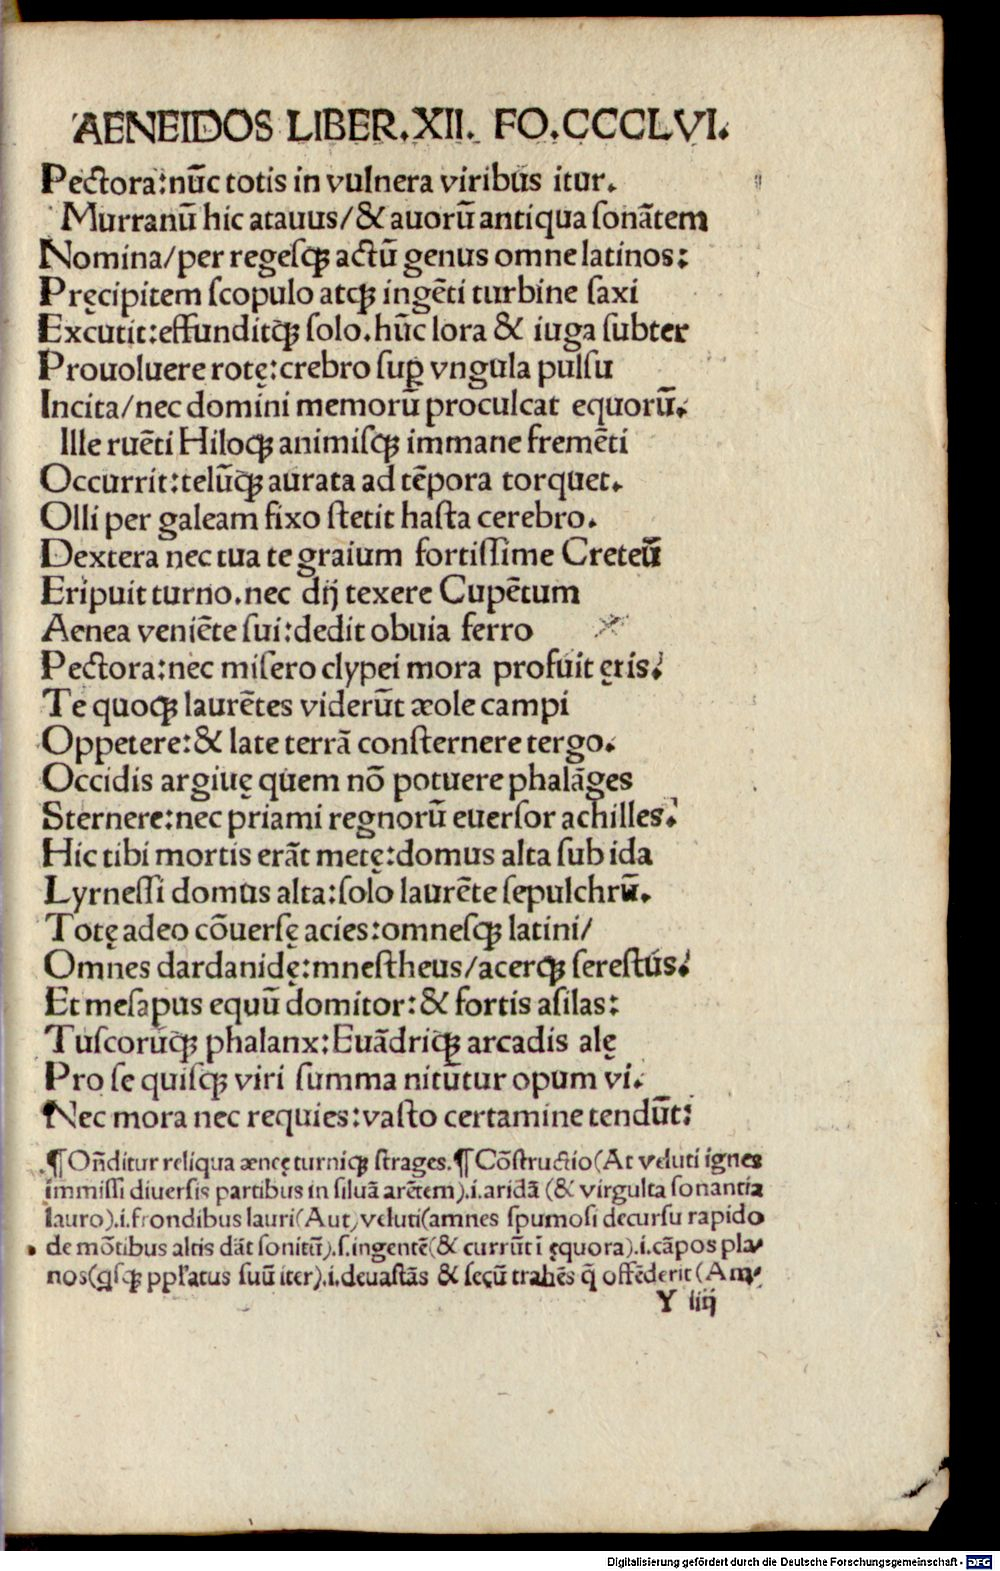 AENEIDOS LIBER.XII. FO.CCCLVI.
Pectora:nūc totis in vulnera viribus itur.
Murranū hic atauus/& auorū antiqua sonātem
Nomina/per regesq; actū genus omne latinos:
Pręcipitem scopulo atq; ingēti turbine saxi
Excutit:effunditq; solo.hūc lora & iuga subter
Prouoluere rotę:crebro sup̱ vngula pulsu
Incita/nec domini memorū proculcat equorū.
Ille ruēti Hiloq; animisq; immane fremēti
Occurrit:telūq; aurata ad tēpora torquet.
Olli per galeam fixo stetit hasta cerebro.
Dextera nec tua te graium fortissime Creteū
Eripuit turno.nec dij texere Cupētum
Aenea veniēte sui:dedit obuia ferro
Pectora:nec misero clypei mora profuit ęris.
Te quoq; laurētes viderūt æole campi
Oppetere:& late terrā consternere tergo.
Occidis argiuę quem nō potuere phalāges
Sternere:nec priami regnorū euersor achilles.
Hic tibi mortis erāt metę:domus alta sub ida
Lyrnessi domus alta:solo laurēte sepulchrū.
Totę adeo cōuersę acies:omnesq; latini/
Omnes dardanidę:mnestheus/acerq; serestus.
Et mesapus equū domitor:& fortis asilas:
Tuscorūq; phalanx:Euādriq; arcadis alę
Pro se quisq; viri summa nitūtur opum vi.
Nec mora nec requies:vasto certamine tendūt:
¶ Oñditur reliqua æneę turniq; strages.¶ Cōstructio(At veluti ignes
immissi diuersis partibus in siluā arētem).i.aridā (& virgulta sonantia
lauro).i.frondibus lauri(Aut) veluti(amnes spumosi decursu rapido
de mōtibus altis dāt sonitū).s.ingentē(& currūt ī ęquora).i.cāpos pla-
nos(q̱sq; pp̱ułatus suū iter).i.deuastās & secū trahēs q̄ offēderit(Am-
Y iiij
Digitalisierung gefördert durch die Deutsche Forschungsgemeinschaft - DFG